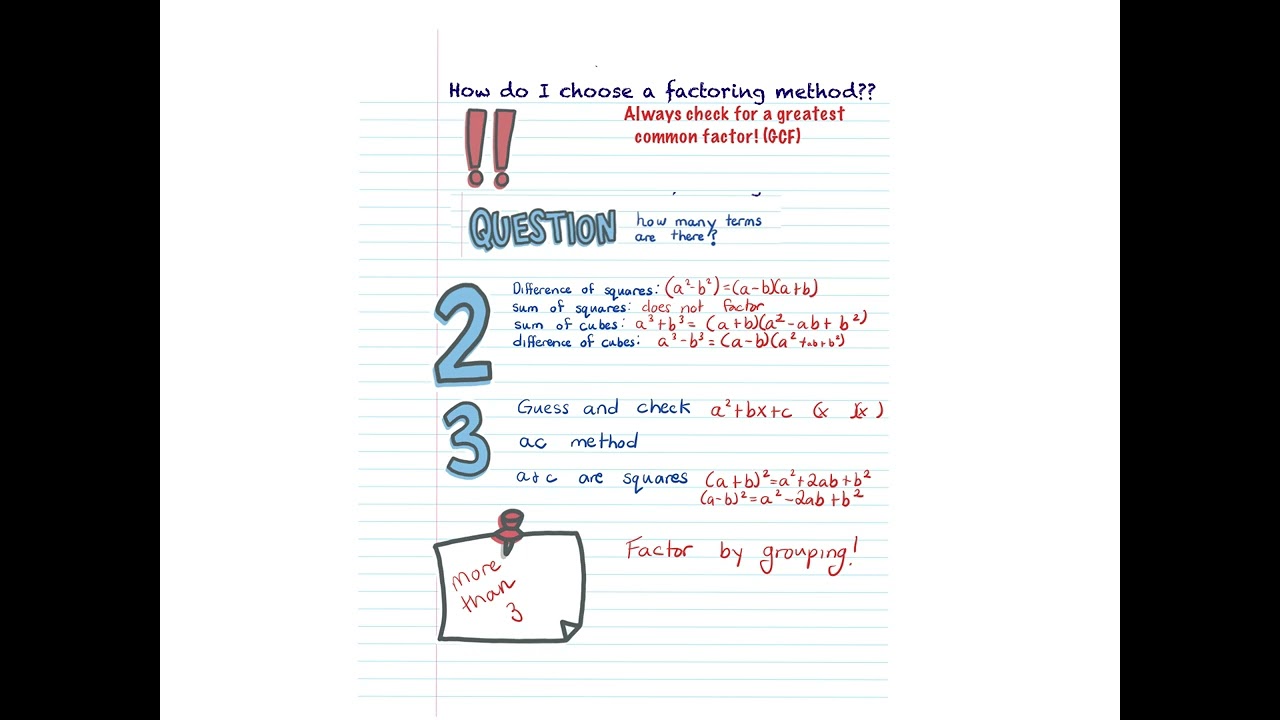 How do I choose a factoring method??
Always check for a greatest
common factor! (GCF)
!!
QUESTION how many terms
are there?
2
Difference of squares: (a²-b²)=(a-b)(a+b)
sum of squares: does not factor
sum of cubes: a³+b³= (a+b)(a²-ab+b²)
difference of cubes: a³-b³=(a-b)(a²+ab+b²)
3
Guess and check a²+bx+c (x )(x )
ac method
a&c are squares (a+b)²=a²+2ab+b²
(a-b)²=a²-2ab+b²
more
than
3
Factor by grouping!